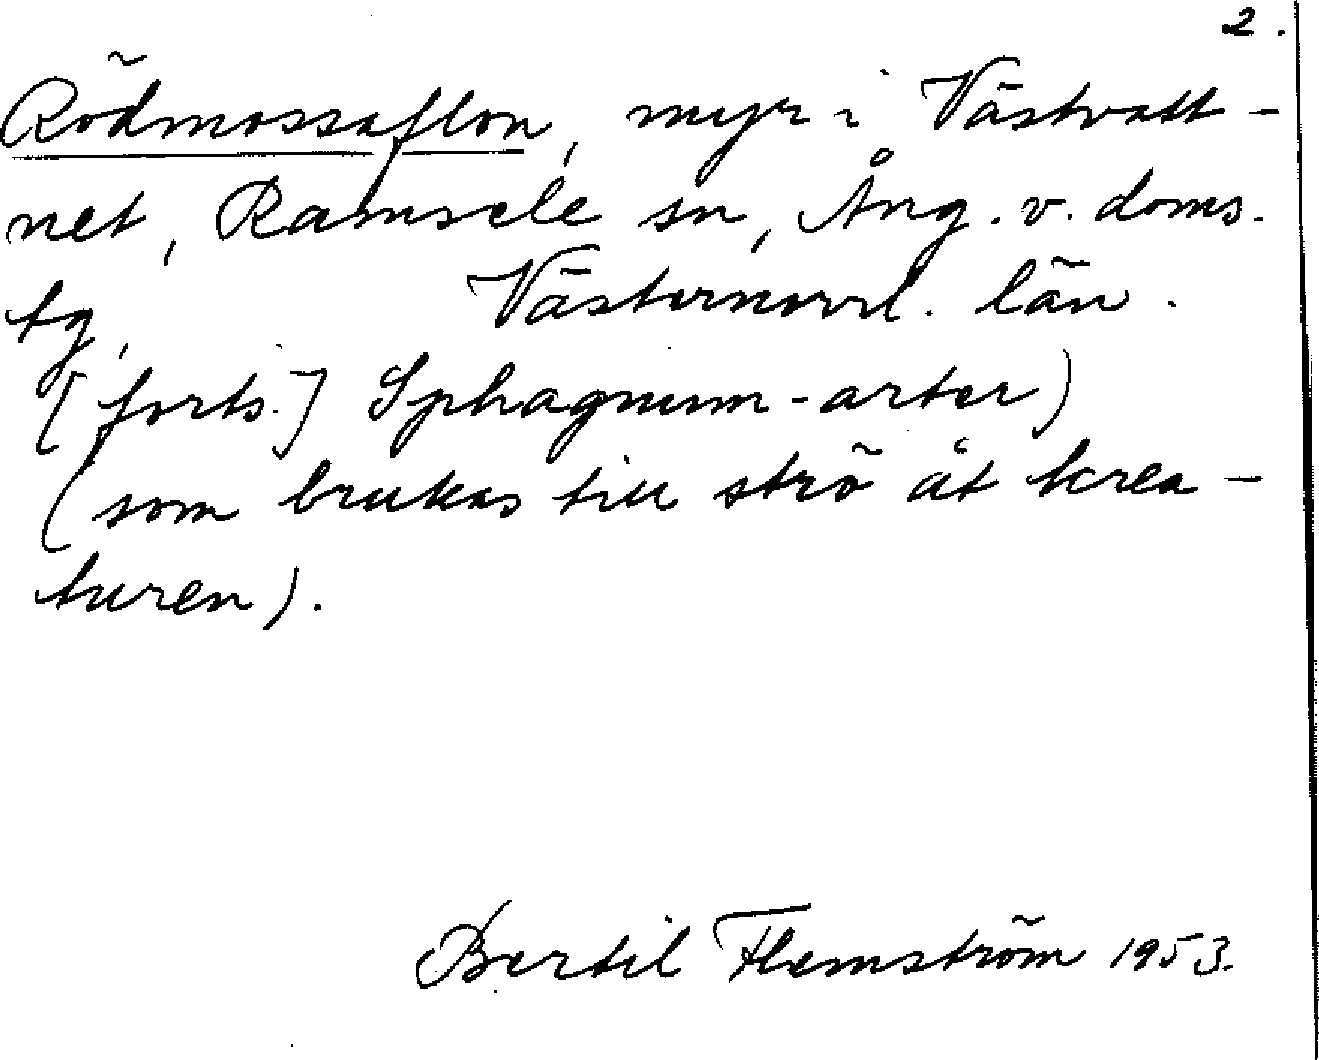 2.
Rödmossaflon, myr i Västvatt-
net, Ramsele sn, Ång. v. doms.
tg, Västernorrl. län.
[forts.] Sphagnum-arter)
(som brukas till strö åt krea-
turen).
Bertil Flemström 1953.